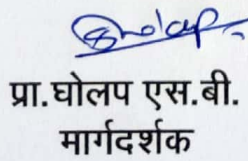 प्रा.घोलप एस.बी.
मार्गदर्शक